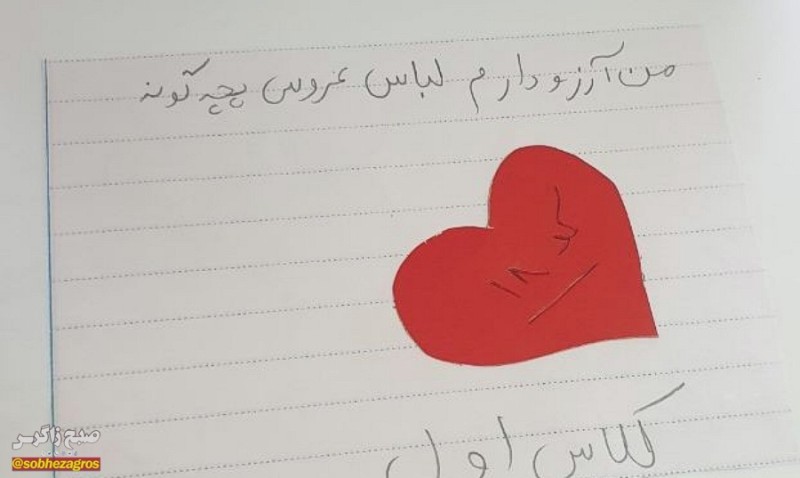 من آرزو دارم لباس عروس بچه گونه
کد ۱۸
کلاس اول
صبح زاگرس
@sobhezagros